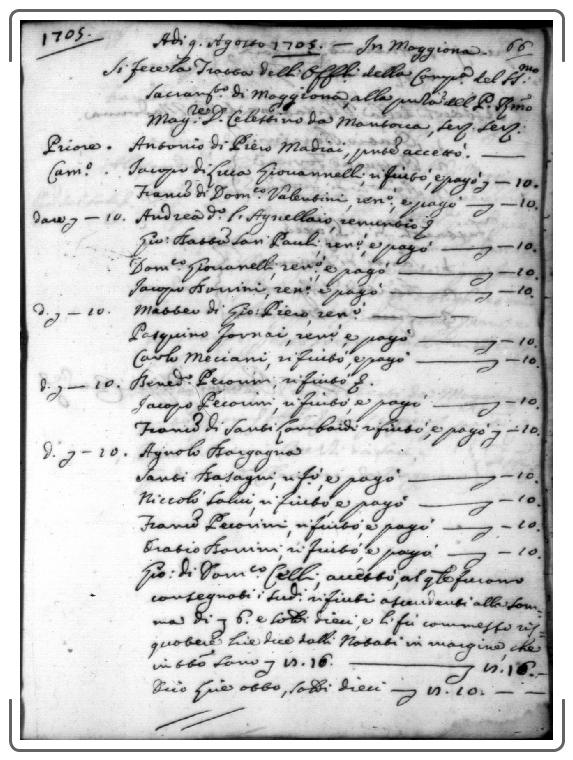 1705.
Adi 9. Agosto 1705. — In Maggiona. 66
Si fece la Tratta delli Offli della Comp.a del SS.mo
Sacram.to di Maggiona, alla pnza del P. Rmo
Mag.re D. Celestino da
Priore. Antonio di Piero Madiai, accettò.
Cam.o. Jacopo di Luca Giovannelli, rifiutò, e pagò — 10.
Franco di Dom.co Valentini, ren.o, e pagò — 10.
dare — 10. Andrea d. Agnellaio, renuntiò
Gio: Batta San Pauli ren.o, e pagò — 10.
Dom.co Giovanelli, ren.o, e pagò — 10.
Jacopo Bonini, ren.o e pagò — 10.
d. — 10. Matteo di Gio: Piero, ren.o
Pasquino Fornai, ren.o e pagò — 10.
Carlo Meciani, rifiutò, e pagò — 10.
d. — 10. Bened.o Pecorini, rifiutò
Jacopo Pecorini, rifiutò, e pagò — 10.
Franco di Santi Lombardi rifiutò, e pagò — 10.
d. — 10. Agnolo Bargagna
Santi Batagni, rifò, e pagò — 10.
Niccolò Salvi, rifiutò, e pagò — 10.
Franco Pecorini, rifiutò, e pagò — 10.
Orazio Bonini, rifiutò, e pagò — 10.
Gio: di Dom.co Celli, accettò, al qle furono
consegnati i sudi rifiuti ascendenti alla som-
ma di 6. e soldi dieci, e li fu commesso ris-
quotere lire dua dalli Notati in margine, che
in tto sono 16. — 16. —
Dico lire otto, soldi dieci — 10. —